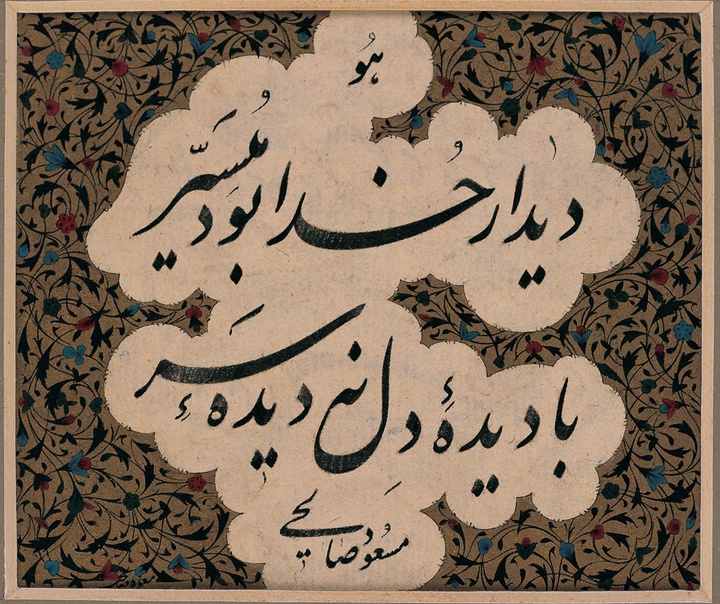 هُو
دیدار خُدا بُوَد مُیَسَّر
با دیدهٔ دل نه دیدهٔ سَر
مسعود صالحی